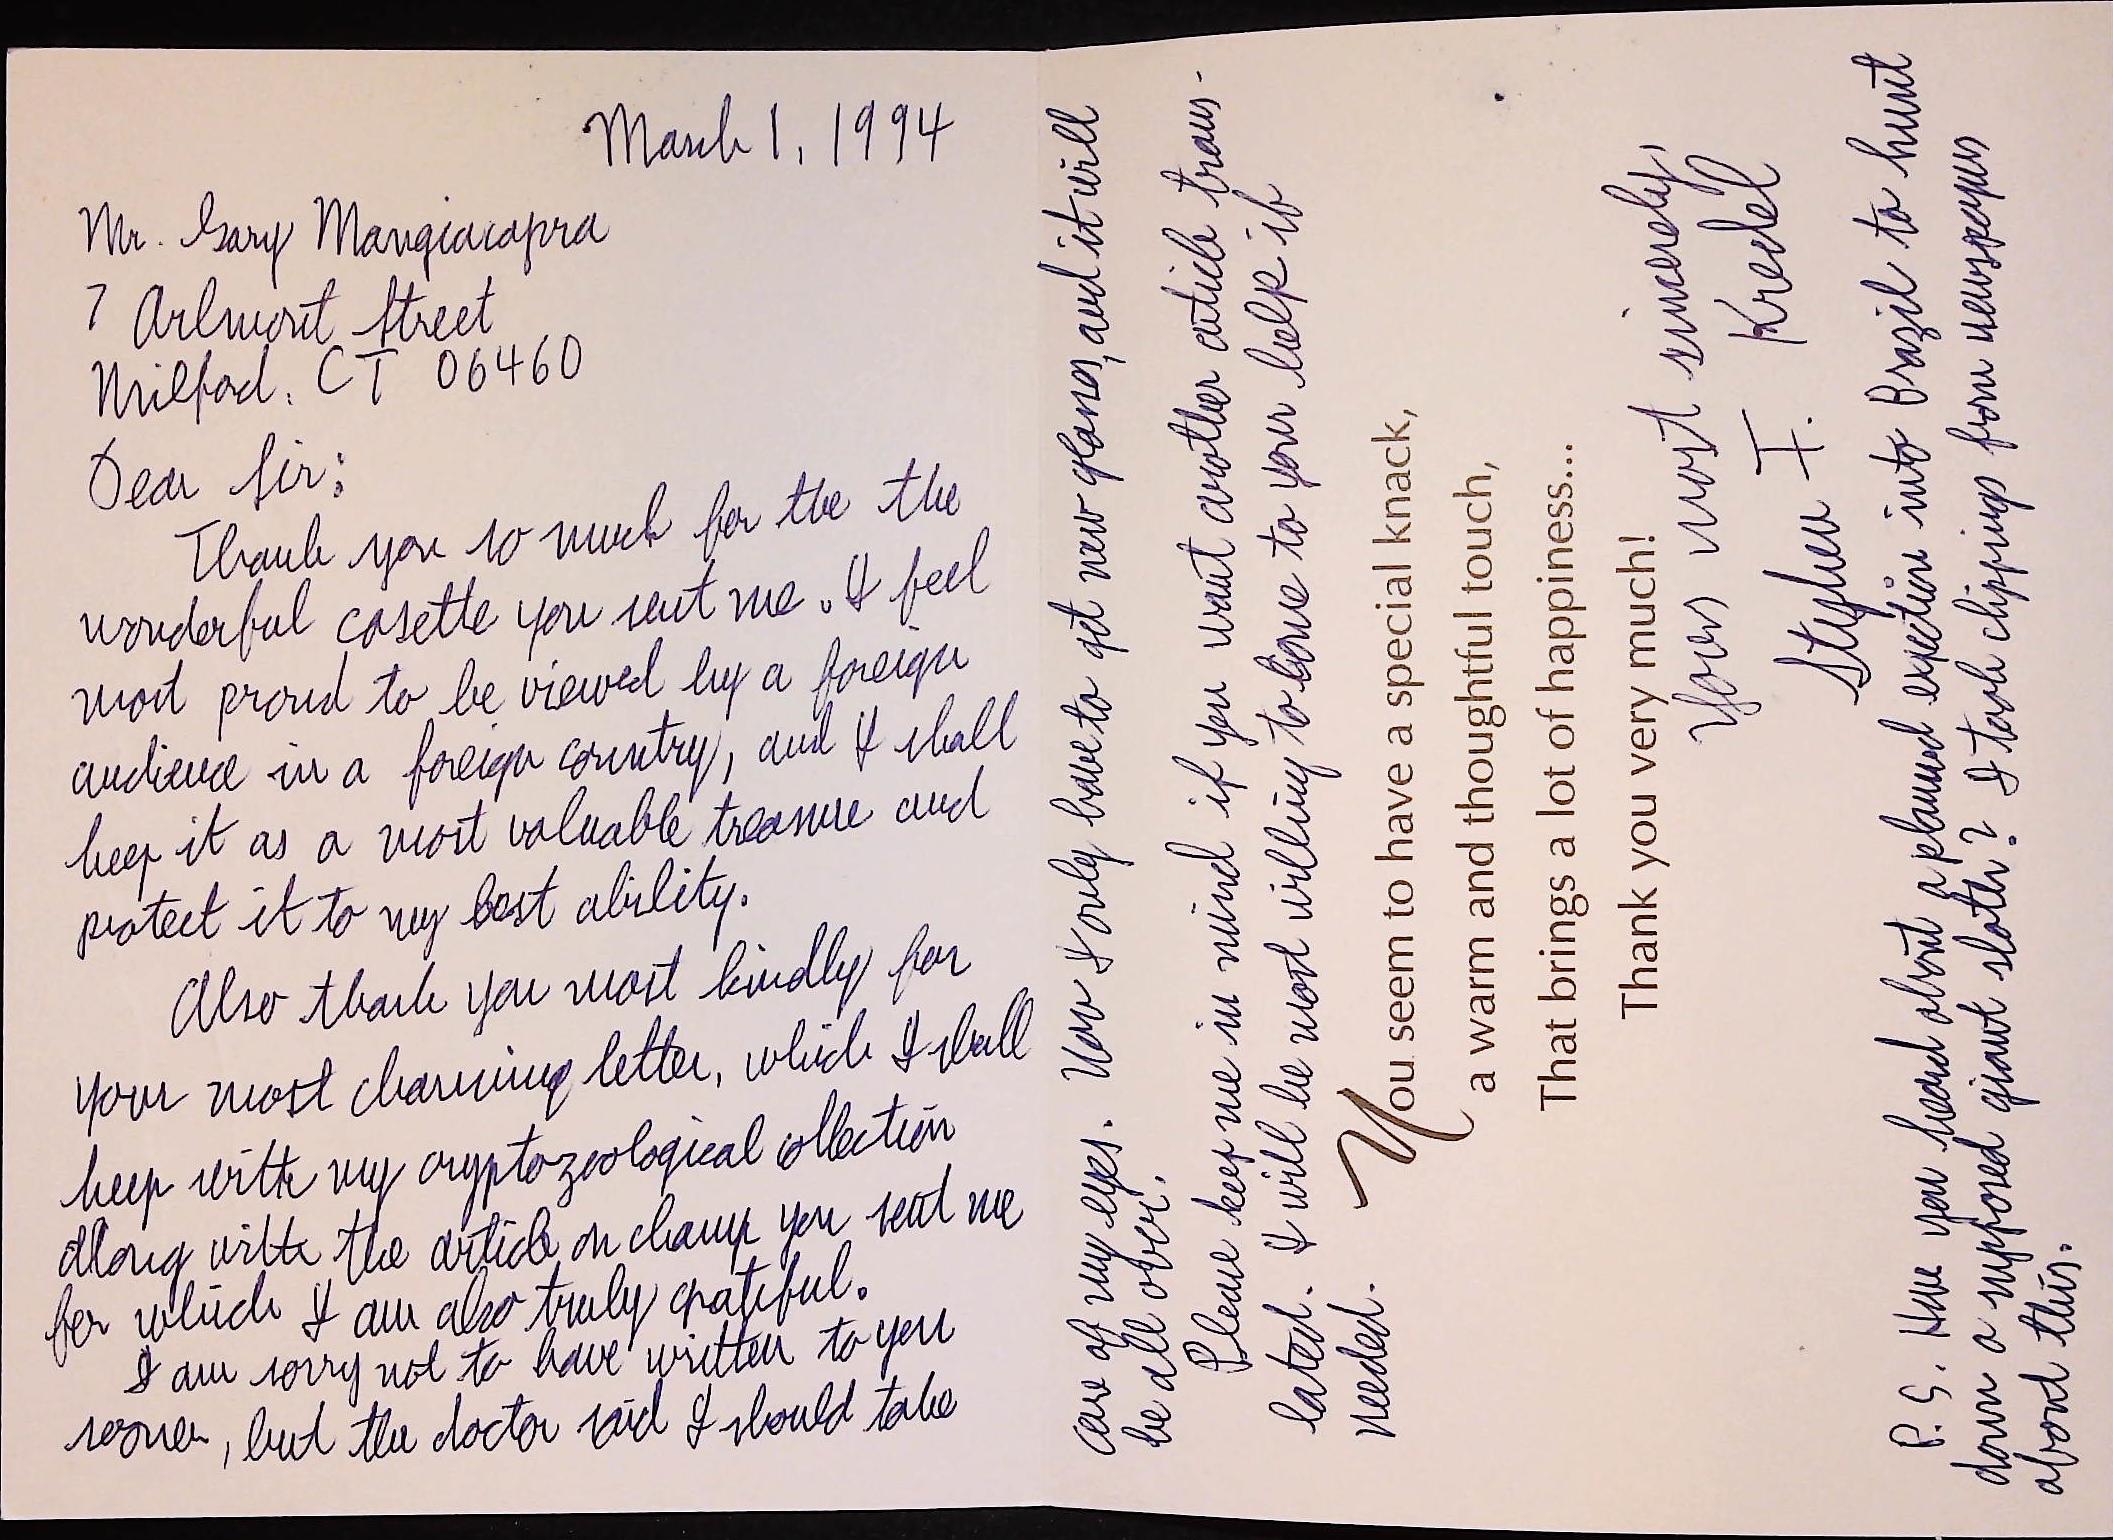 March 1, 1994
Mr. Gary Mangiacapra
7 Arlmont Street
Milford, CT 06460
Dear Sir:
Thank you so much for the the
wonderful casette you sent me. I feel
most proud to be viewed by a foreign
audience in a foreign country, and I shall
keep it as a most valuable treasure and
protect it to my best ability.
Also thank you most kindly for
your most charming letter, which I shall
keep with my cryptozoological collection
along with the article on champ you sent me
for which I am also truly grateful.
I am sorry not to have written to you
sooner, but the doctor said I should take
care of my eyes. Now I only have to get new glasses, and it will
be all over.
Please keep me in mind if you want another article trans-
lated. I will be most willing to come to your help if
needed.
You seem to have a special knack,
a warm and thoughtful touch,
That brings a lot of happiness...
Thank you very much!
Yours most sincerely,
Stephen I. Kredel
P.S. Have you heard about a planned expection into Brazil to hunt
down a supposed giant sloth? I took clippings from newspapers
about this.